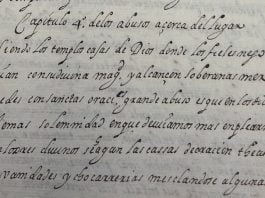 Capitulo 4º. de los abusos açerca del lugar
siendo los templos casas de Dios donde los fieles nego
con su divina mag. y alcançan soberanas mer
çedes con sanctas oraciº. grande abuso es que en los ti
solemnidad. en que deviamos mas emplear
loores divinos se agan las casas de oracion thea
vanidades y chocarrerias mesclandose alguna